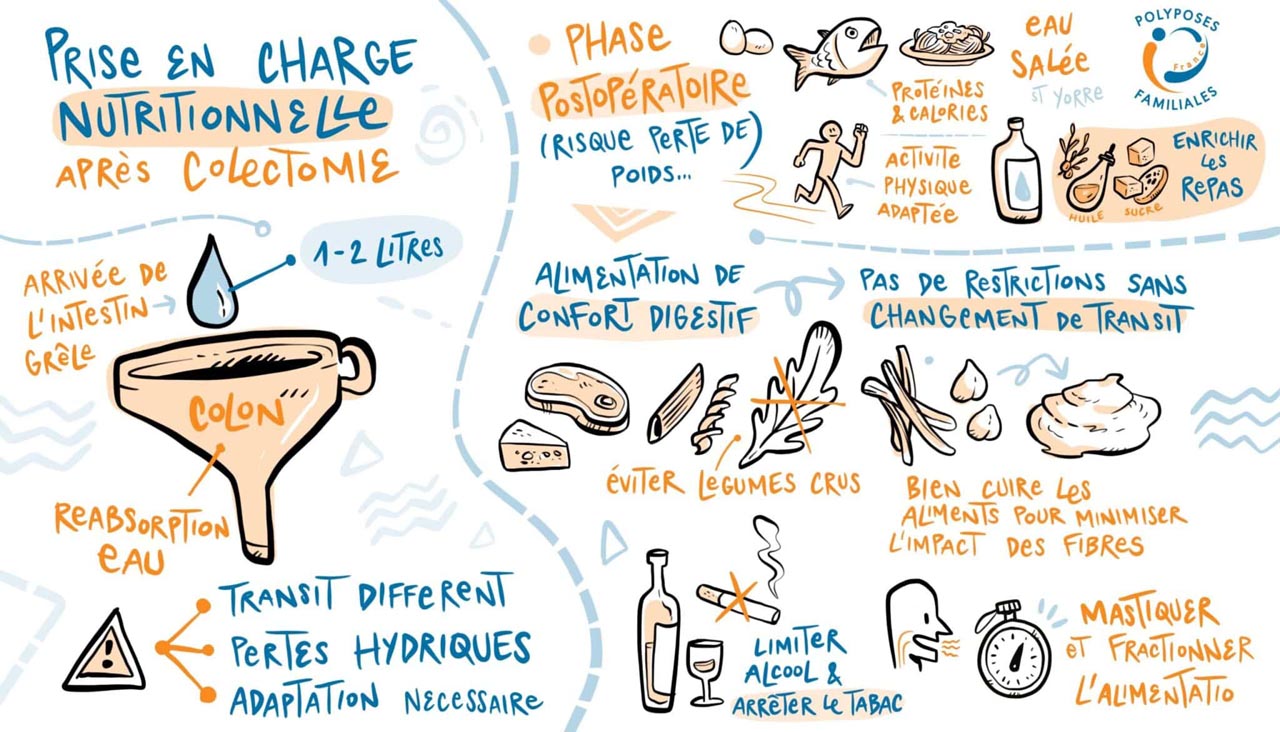 PRISE EN CHARGE
NUTRITIONNELLE
APRÈS COLECTOMIE
ARRIVÉE DE
L'INTESTIN
GRÊLE
1-2 LITRES
COLON
REABSORPTION
EAU
TRANSIT DIFFERENT
PERTES HYDRIQUES
ADAPTATION NECESSAIRE
PHASE
POSTOPÉRATOIRE
(RISQUE PERTE DE)
POIDS...
PROTÉINES
& CALORIES
ACTIVITE
PHYSIQUE
ADAPTÉE
EAU
SALÉE
ST YORRE
POLYPOSES
France
FAMILIALES
ENRICHIR
LES
REPAS
HUILE
SUCRE
ALIMENTATION DE
CONFORT DIGESTIF
PAS DE RESTRICTIONS SANS
CHANGEMENT DE TRANSIT
ÉVITER LÉGUMES CRUS
BIEN CUIRE LES
ALIMENTS POUR MINIMISER
L'IMPACT DES FIBRES
LIMITER
ALCOOL &
ARRÊTER LE TABAC
MASTIQUER
ET FRACTIONNER
L'ALIMENTATIO